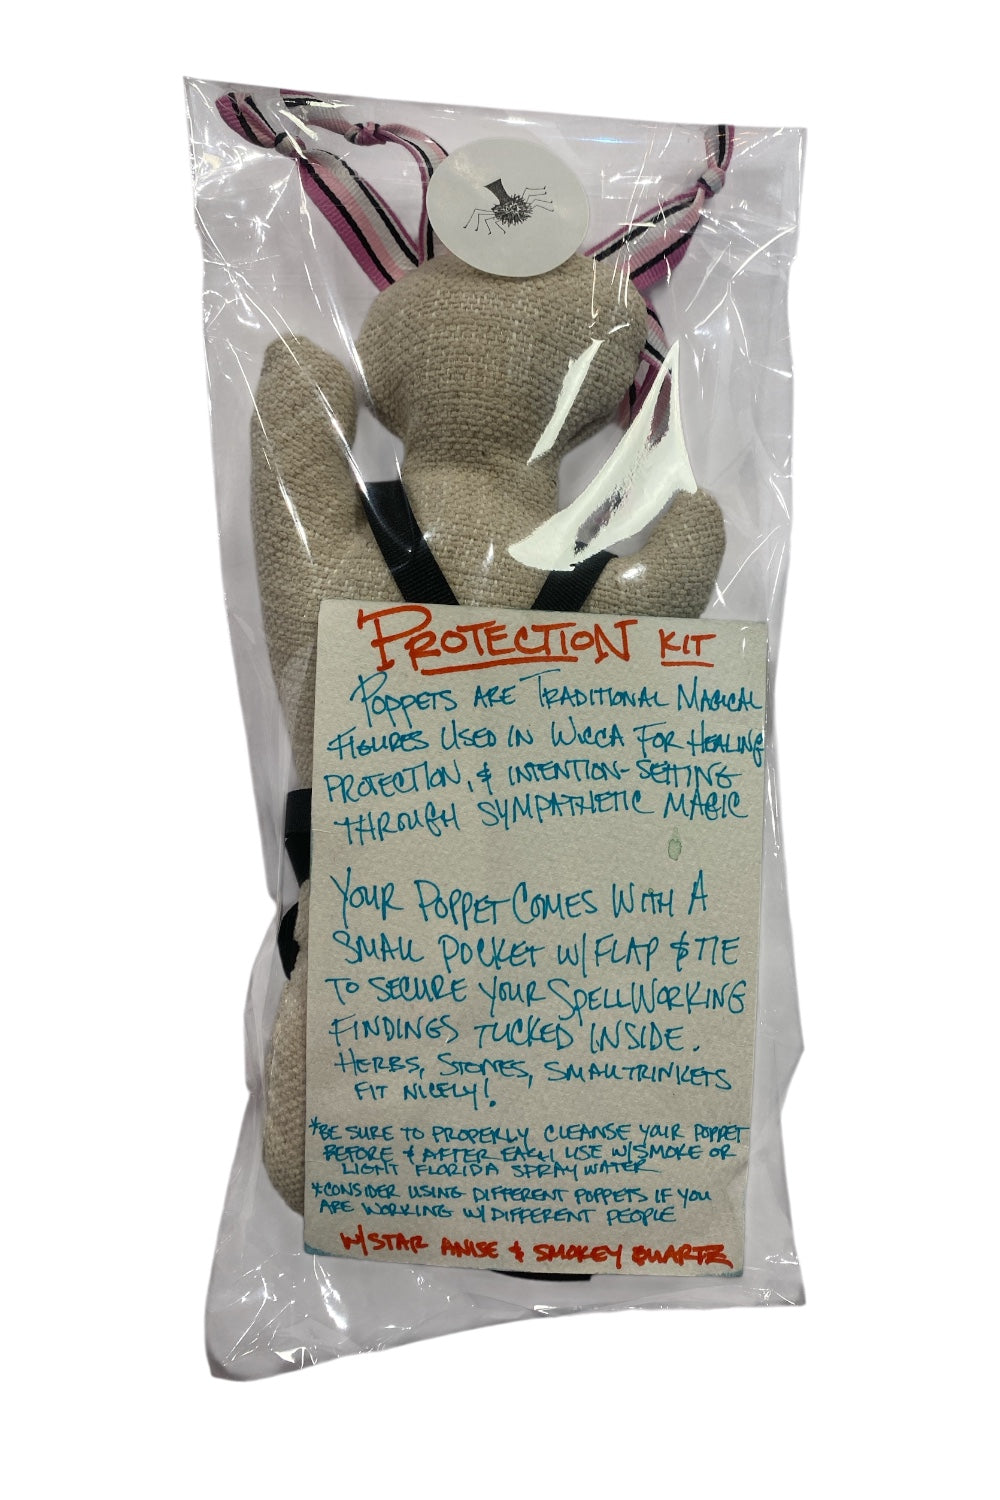 PROTECTION KIT
POPPETS ARE TRADITIONAL MAGICAL
FIGURES USED IN WICCA FOR HEALING
PROTECTION, & INTENTION-SETTING
THROUGH SYMPATHETIC MAGIC
YOUR POPPET COMES WITH A
SMALL POCKET W/FLAP & TIE
TO SECURE YOUR SPELLWORKING
FINDINGS TUCKED INSIDE.
HERBS, STONES, SMALL TRINKETS
FIT NICELY!
*BE SURE TO PROPERLY CLEANSE YOUR POPPET
BEFORE & AFTER EACH USE W/SMOKE OR
LIGHT FLORIDA SPRAY WATER
*CONSIDER USING DIFFERENT POPPETS IF YOU
ARE WORKING W/DIFFERENT PEOPLE
W/STAR ANISE & SMOKEY QUARTZ